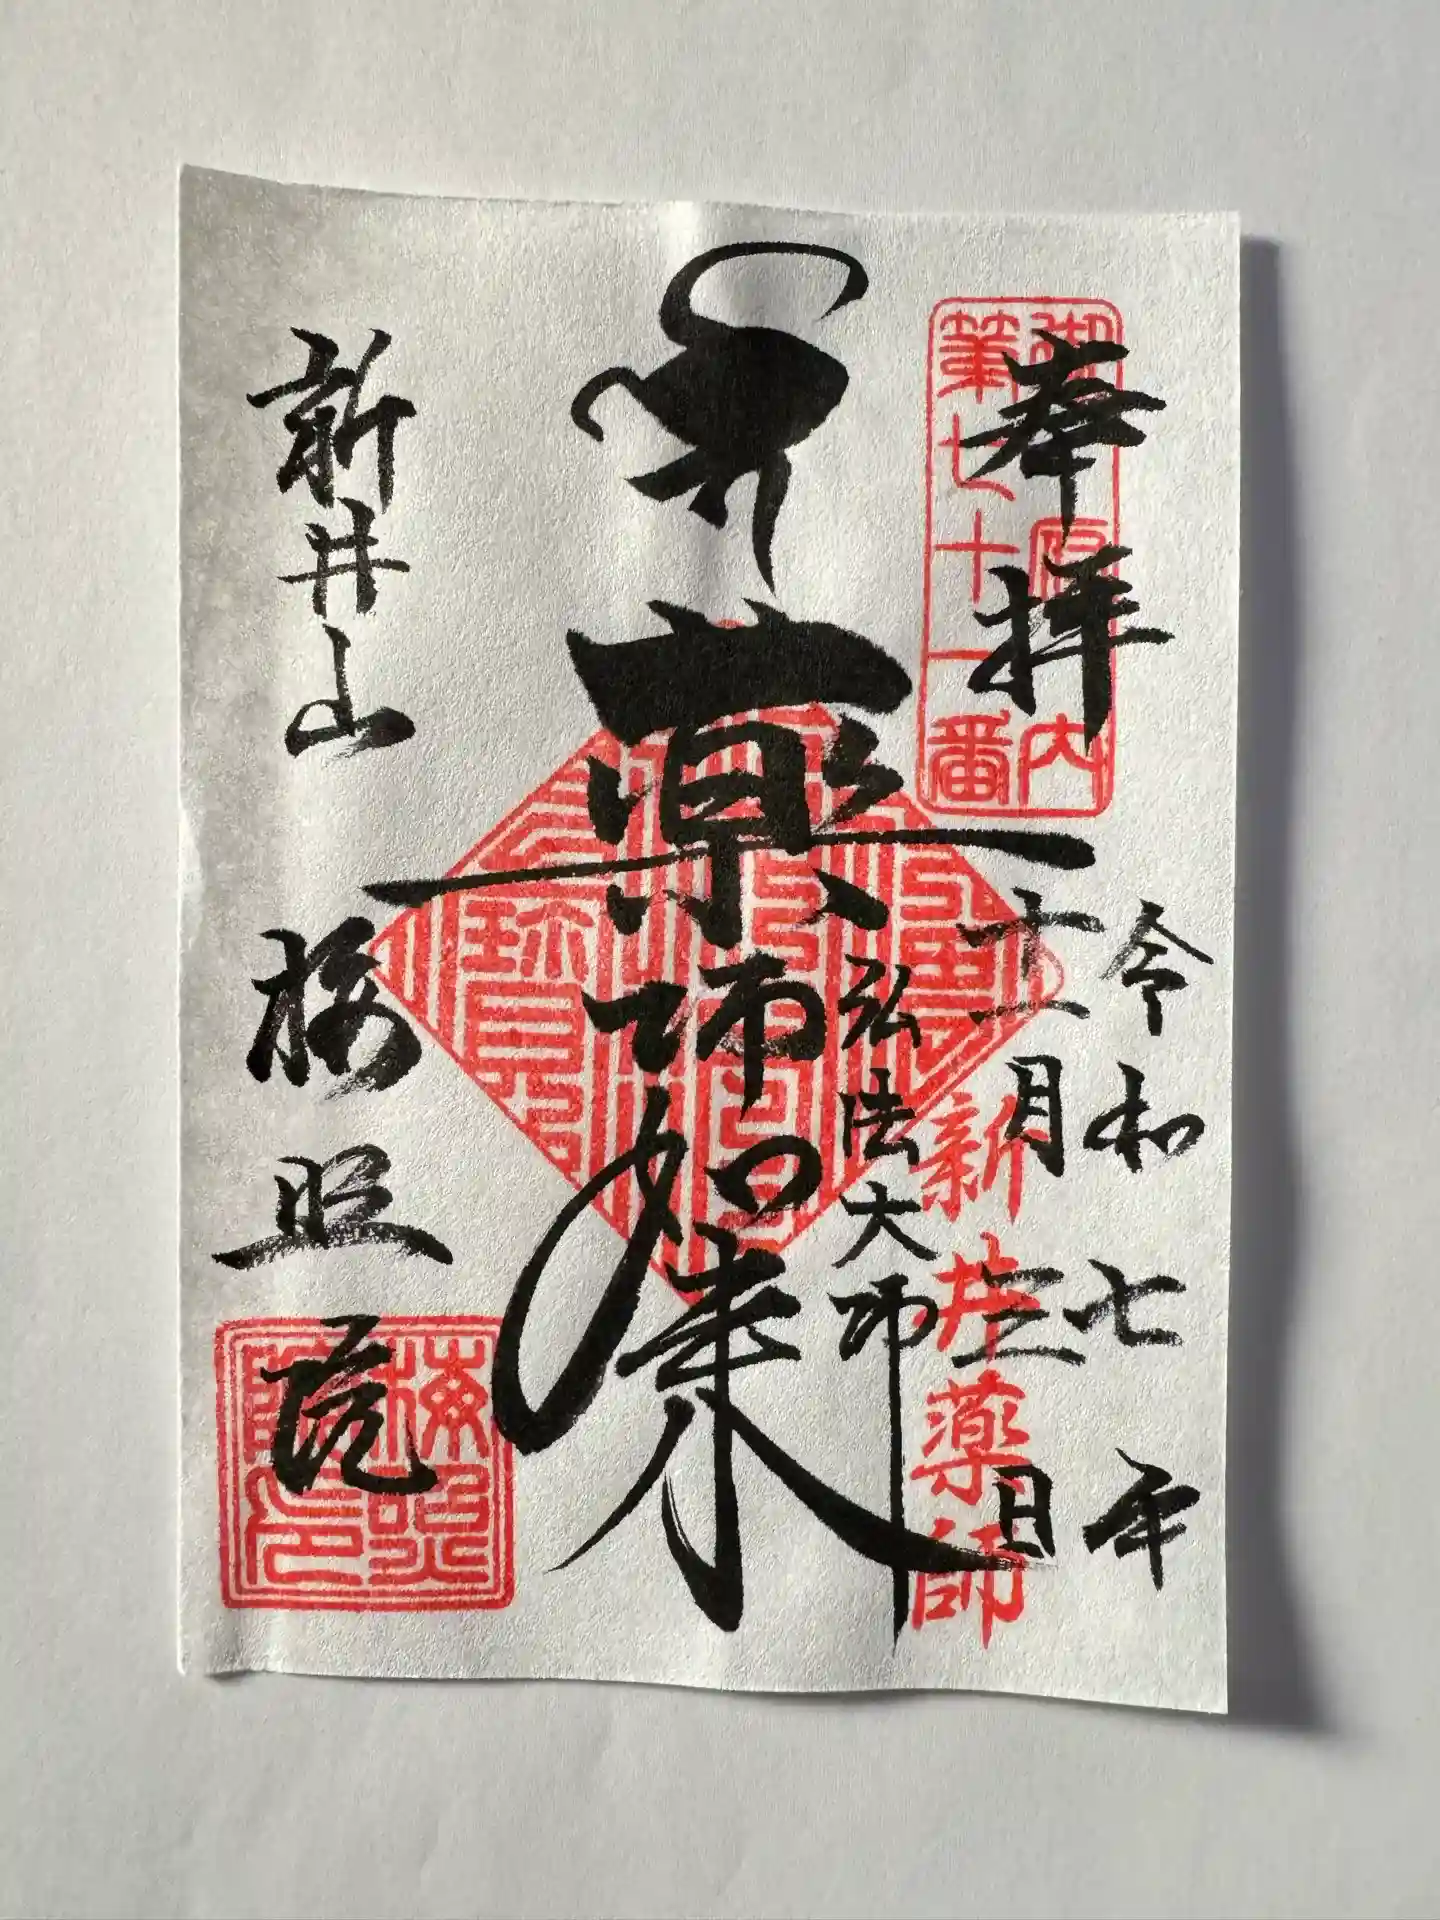 令和七年
十二月三日
奉拝
御府内
第七十一番
新井薬師
弘法大師
薬師如来
新井山
梅照院
梅照院印